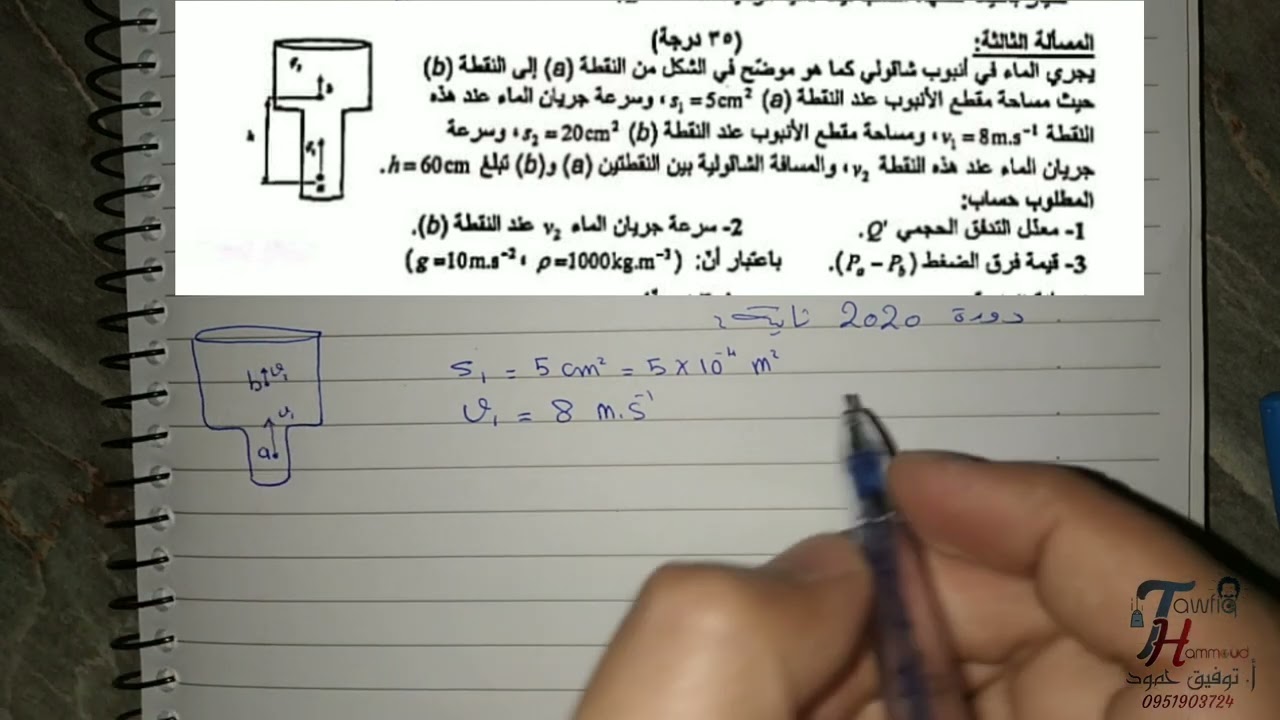 المسألة الثالثة: (٣٥ درجة)
يجري الماء في أنبوب شاقولي كما هو موضّح في الشكل من النقطة (a) إلى النقطة (b)
حيث مساحة مقطع الأنبوب عند النقطة (a) s₁ = 5cm²، وسرعة جريان الماء عند هذه
النقطة v₁ = 8m.s⁻¹، ومساحة مقطع الأنبوب عند النقطة (b) s₂ = 20cm²، وسرعة
جريان الماء عند هذه النقطة v₂، والمسافة الشاقولية بين النقطتين (a) و(b) تبلغ h = 60cm.
المطلوب حساب:
1- معدّل التدفق الحجمي Q'. 2- سرعة جريان الماء v₂ عند النقطة (b).
3- قيمة فرق الضغط (Pₐ − P_b). باعتبار أنّ: (g=10m.s⁻² ، ρ=1000kg.m⁻³)
دورة 2020 ثانية
S₁ = 5 cm² = 5 × 10⁻⁴ m²
v₁ = 8 m.s⁻¹
b v₁
v₁
a
Tawfiq
Hammoud
أ. توفيق حمود
0951903724